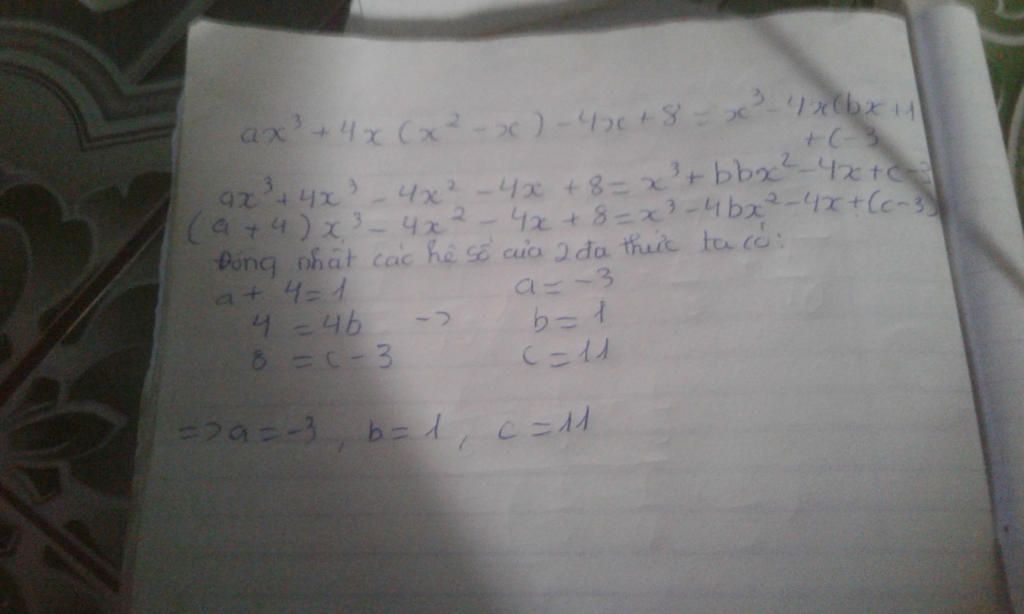 ax³ + 4x (x² - x) - 4x + 8 = x³ - 4x(bx+1
+c-3
ax³ + 4x³ - 4x² - 4x + 8 = x³ + bbx² - 4x + c-3
(a + 4) x³ - 4x² - 4x + 8 = x³ - 4bx² - 4x + (c-3)
Đồng nhất các hệ số của 2 đa thức ta có:
a + 4 = 1 a = -3
4 = 4b -> b = 1
8 = c - 3 c = 11
=> a = -3, b = 1, c = 11